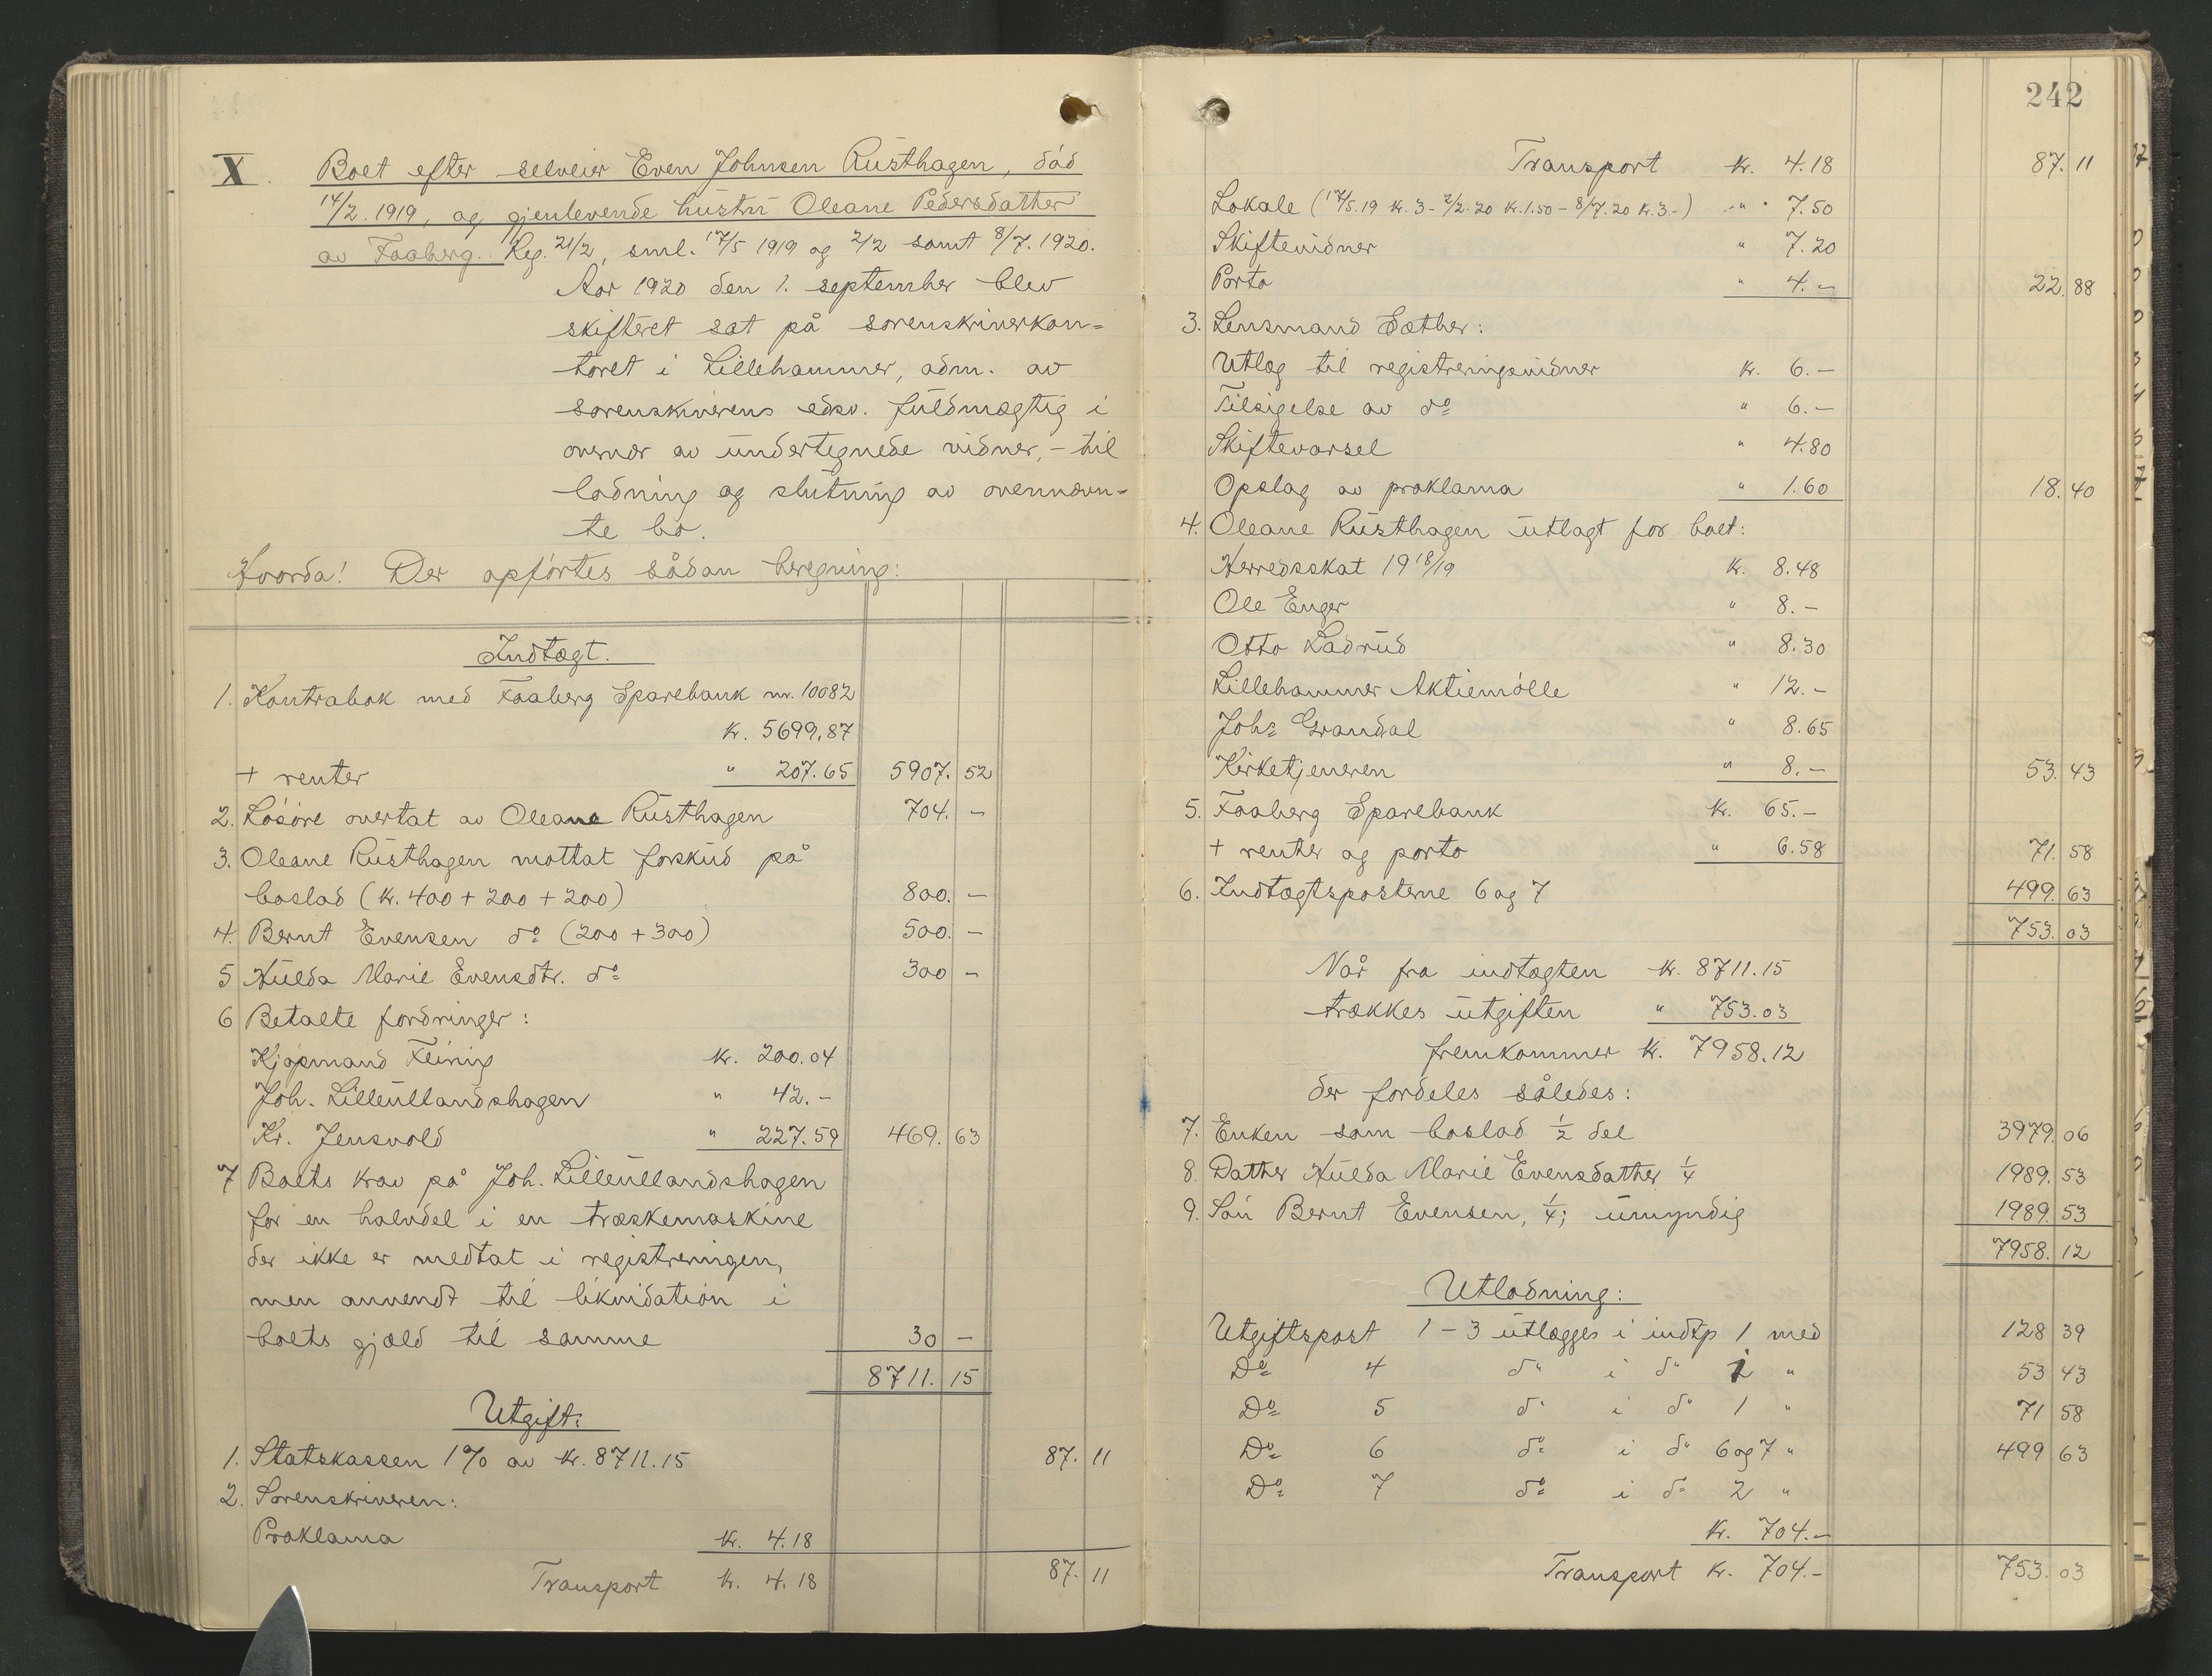 X. Boet efter selveier Even Johnsen Rusthagen, död
14/2. 1919, og gjenlevende hustru Oleane Pedersdatter
av Faaberg. Reg. 21/2, sml. 17/5 1919 og 2/2 samt 8/7. 1920.
Aar 1920 den 1. september blev
skifteret sat på sorenskriverkon=
toret i Lillehammer, adm. av
sorenskriverens edsv. fuldmægtig i
overvær av undertegnede vidner, - til
lodning og slutning av ovennævn=
te bo.
Hvorda! Der opförtes sådan beregning:
Indtægt.
1. Kontrabok med Faaberg Sparebank nr. 10082
kr. 5699,87
+ renter " 207.65 5907. 52
2. Lösöre overtat av Oleane Rusthagen 704. -
3. Oleane Rusthagen mottat forskud på
boslod (kr. 400 + 200 + 200) 800. -
4. Bernt Evensen do (200 + 300) 500. -
5 Hulda Marie Evensdtr. do 300 -
6 Betalte fordringer:
Kjöpmand Fleinig kr. 200.04
Joh. Lilleullandshagen " 42.-
Kr. Jensvold " 227.59 469. 63
7 Boets krav på Joh. Lilleullandshagen
for en halvdel i en træskemaskine
der ikke er medtat i registreringen,
men anvendt til likvidation i
boets gjæld til samme 30 -
8711. 15
Utgift:
1. Statskassen 1% av kr. 8711.15 87. 11
2. Sorenskriveren:
Proklama kr. 4.18
Transport kr. 4.18 87. 11
242
Transport kr. 4.18 87. 11
Lokale (17/5.19 kr. 3- 2/2.20 kr. 1.50 - 8/7.20 kr. 3.-) " 7.50
Skiftevidner " 7.20
Porto " 4.- 22. 88
3. Lensmand Sæther:
Utlæg til registreringsvidner kr. 6.-
Tilsigelse av do " 6.-
Skiftevarsel " 4.80
Opslag av proklama " 1.60 18. 40
4. Oleane Rusthagen utlagt for boet:
Herredsskat 1918/19 kr. 8.48
Ole Enger " 8.-
Otto Ladrud " 8.30
Lillehammer Aktiemölle " 12.-
Johs Grandal " 8.65
Kirketjeneren " 8.- 53. 43
5. Faaberg Sparebank kr. 65.-
+ renter og porto " 6.58 71. 58
6. Indtægtsposterne 6 og 7 499. 63
753. 03
Når fra indtægten kr. 8711.15
trækkes utgiften " 753.03
fremkommer kr. 7958.12
der fordeles således:
7. Enken som boslod 1/2 del 3979. 06
8. Datter Hulda Marie Evensdatter 1/4 1989. 53
9. Sön Bernt Evensen, 1/4; umyndig 1989. 53
7958. 12
Utlodning:
Utgiftspost 1 - 3 utlægges i indtp 1 med 128 39
Do 4 do i do 1 " 53 43
Do 5 do i do 1 " 71 58
Do 6 do i do 6 og 7 " 499 63
Do 7 do i do 2 "
kr. 704.-
Transport kr. 704.- 753. 03